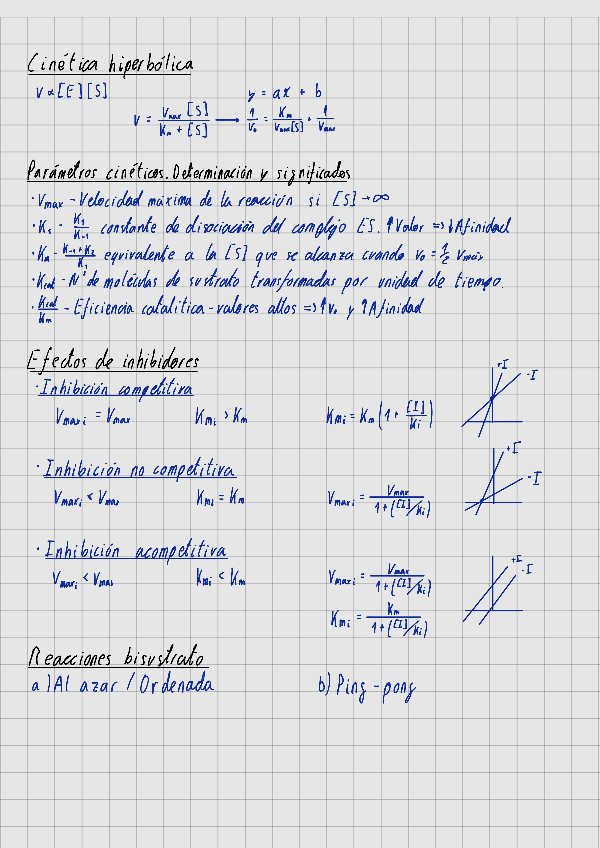 Cinética hiperbólica
V ∝ [E][S]
y = ax + b
V = Vmax [S] / Km + [S] → 1/V₀ = Km/Vmax[S] + 1/Vmax
Parámetros cinéticos. Determinación y significados
· Vmax - Velocidad máxima de la reacción si [S] → ∞
· Ks - K1/K-1 constante de disociación del complejo ES. ↑Valor => ↓Afinidad
· Km - K-1 + K2 / K1 equivalente a la [S] que se alcanza cuando V₀ = 1/2 Vmáx
· Kcat - Nº de moléculas de sustrato transformadas por unidad de tiempo.
· Kcat/Km - Eficiencia catalítica - valores altos => ↑V₀ y ↑Afinidad
Efectos de inhibidores
· Inhibición competitiva
Vmax i = Vmax Km i > Km Km i = Km (1 + [I]/Ki)
+I -I
· Inhibición no competitiva
Vmax i < Vmax Km i = Km Vmax i = Vmax / 1 + ([I]/Ki)
+I -I
· Inhibición acompetitiva
Vmax i < Vmax Km i < Km Vmax i = Vmax / 1 + ([I]/Ki)
+I -I
Km i = Km / 1 + ([I]/Ki)
Reacciones bisustrato
a) Al azar / Ordenada b) Ping-pong